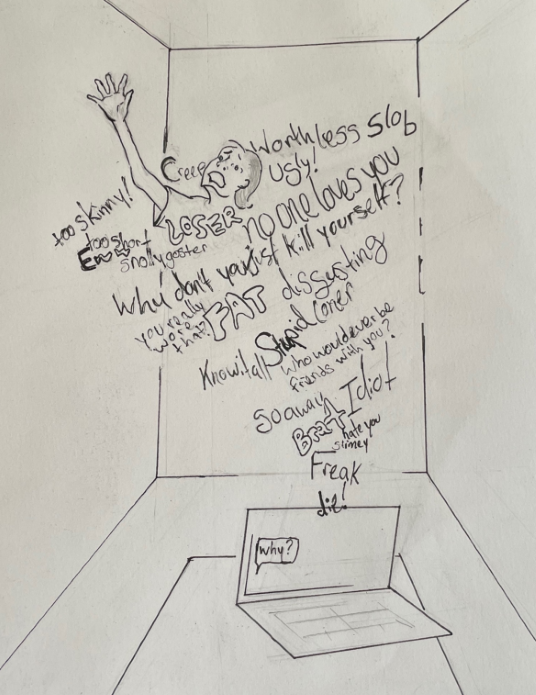 Worthless Slob
Creep
Ugly!
too skinny!
LOSER
no one loves you
too short
Ew
snollygoster
Why don't you just kill yourself?
you really
wore
that?
FAT
disgusting
Stupid
Loner
Know it all
Who would ever be
friends with you?
go away
Idiot
Brat
hate you
Slimey
Freak
die!
why?